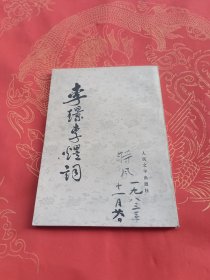 李璟李煜詞
人民文学出版社
蒋风
一九八三年
十一月